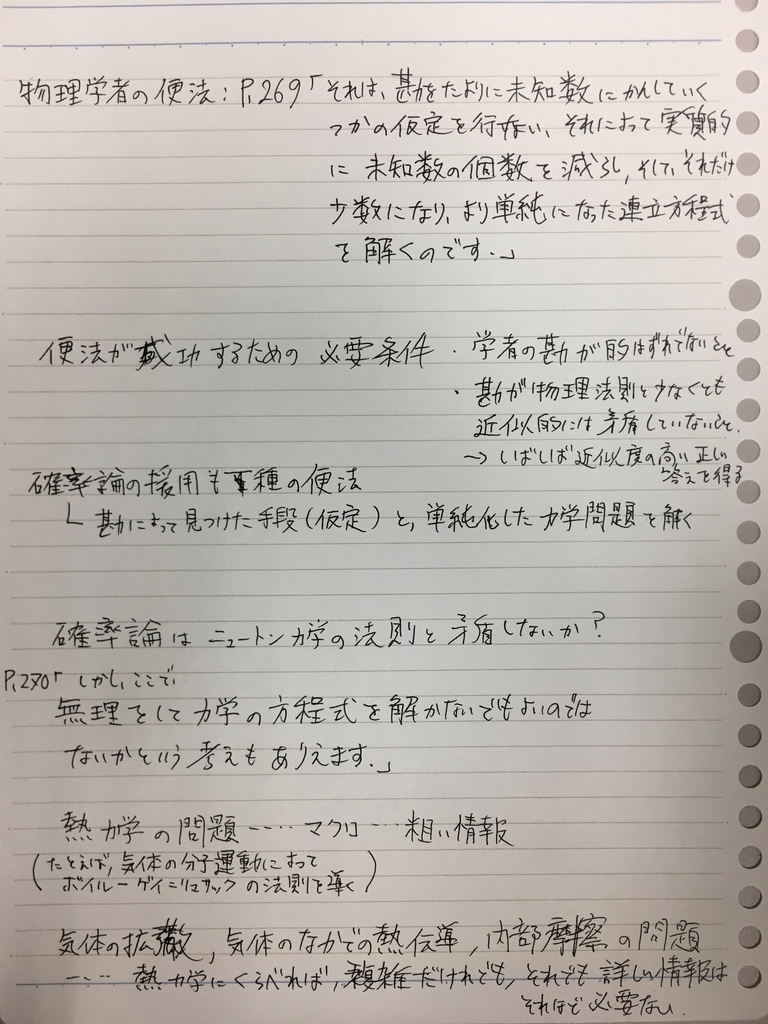 物理学者の便法：P,269「それは、勘をたよりに未知数にかんしていく
つかの仮定を行ない、それによって実質的
に未知数の個数を減らし、そして、それだけ
少数になり、より単純になった連立方程式
を解くのです.」
便法が成功するための必要条件 ・学者の勘が的はずれでないこと
・勘が物理法則と少なくとも
近似的には矛盾していないこと.
→ いばしば近似度の高い正しい
答えを得る
確率論の採用も一種の便法
└ 勘によって見つけた手段(仮定)と、単純化した力学問題を解く
確率論はニュートン力学の法則と矛盾しないか？
P,270「しかし、ここで、
無理をして力学の方程式を解かないでもよいのでは
ないかという考えもありえます.」
熱力学の問題……マクロ…粗い情報
(たとえば、気体の分子運動によって
ボイルーゲイ=リュサックの法則を導く)
気体の拡散、気体のなかでの熱伝導、内部摩擦の問題
…… 熱力学にくらべれば、複雑だけれども、それでも詳しい情報は
それほど必要ない.